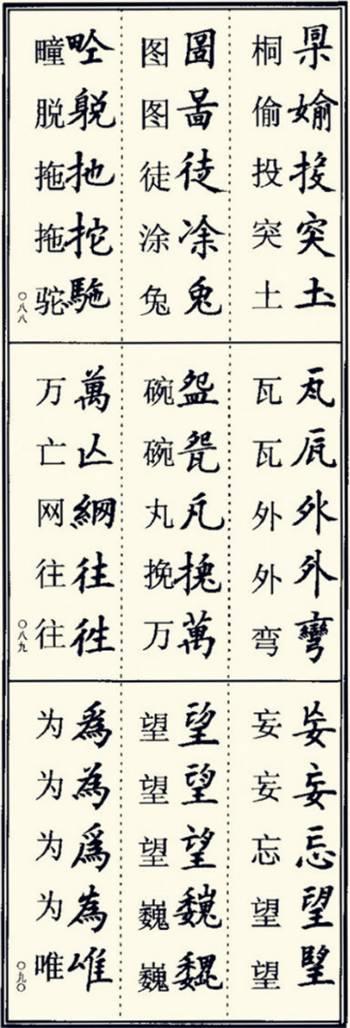 婾投突土
桐偷投突土
圖啚徒凃兔
图图徒涂兔
扡拕駞
疃脱拖拖驼
〇八八
瓦瓦外外彎
瓦瓦外外弯
盌㼝丸挽萬
碗碗丸挽万
萬亾網往徃
万亡网往往
〇八九
妄妄忘望朢
妄妄忘望望
望望望巍巍
望望望巍巍
爲為爲為唯
为为为为唯
〇九〇